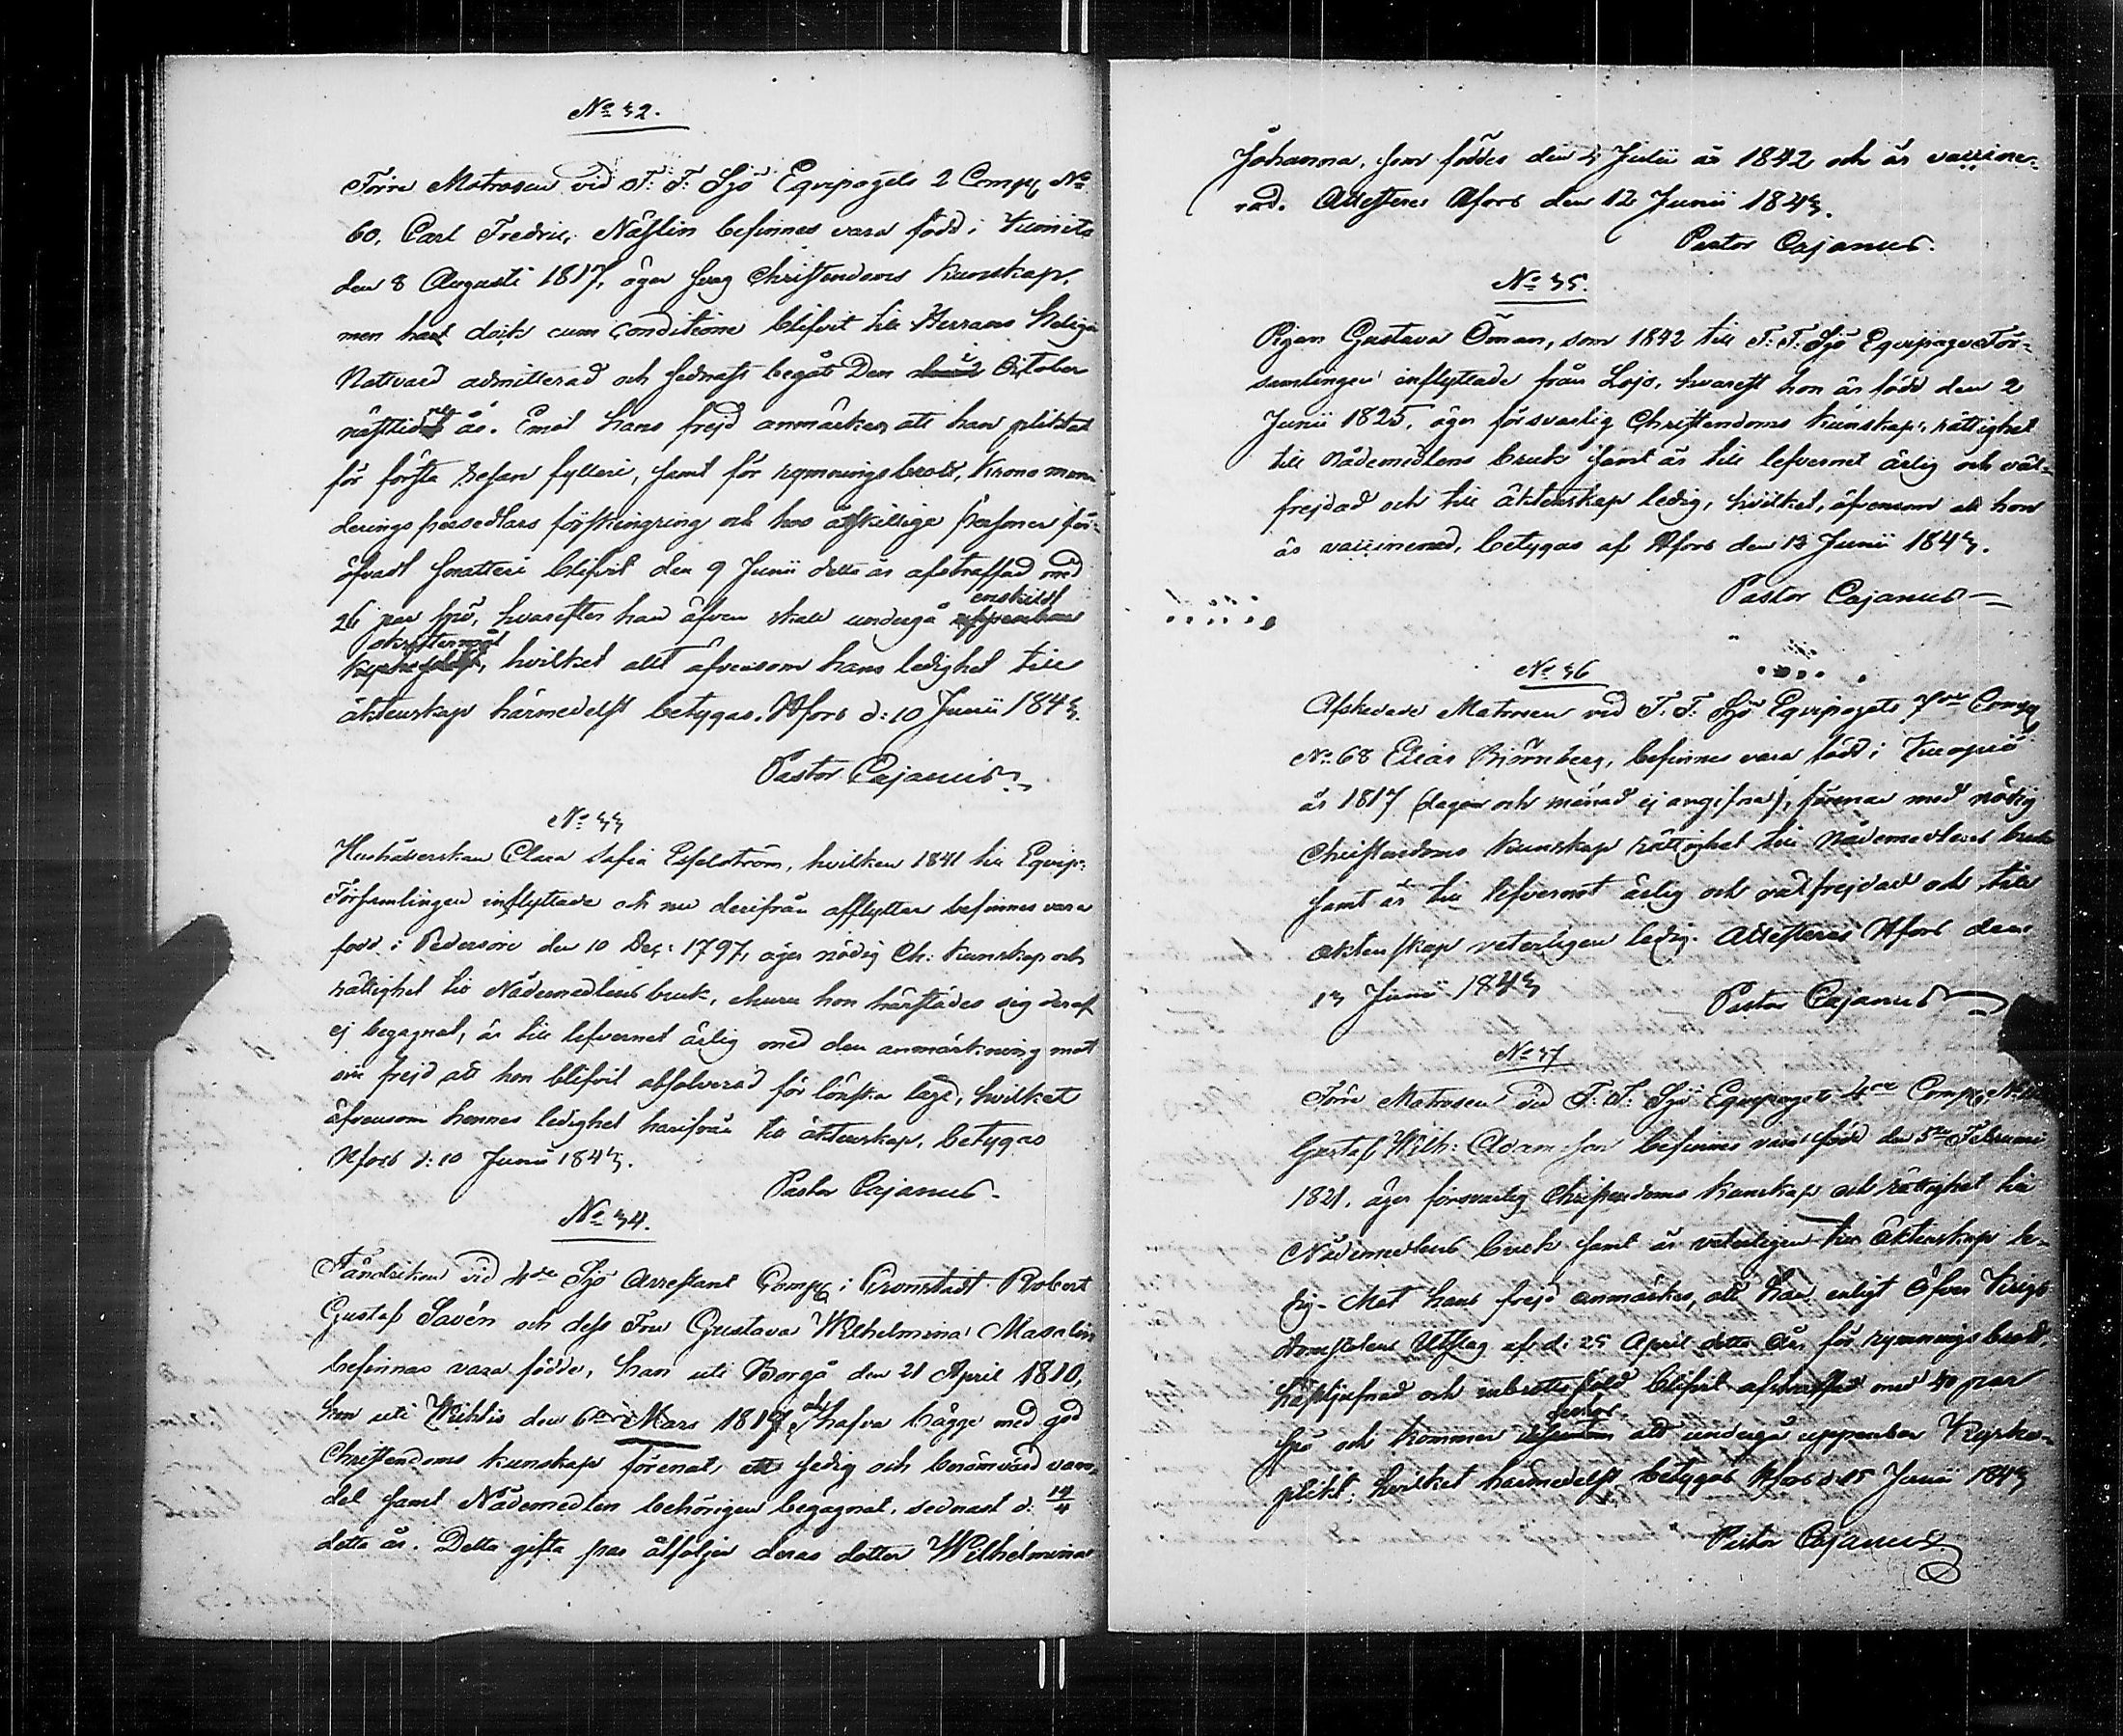 No 32.
Förre Matrosen vid F: F: Sjö Eqvipagets 2 Comp: No
60, Carl Fredric Näslin befinnes vara född i Kimito
den 8 Augusti 1817, äger svag Christendoms kunskap,
men har dock cum conditione blifvit till Herrans Heliga
Nattvard admitterad och sednast begåt Den October
nästlidne år. Emot hans frejd anmärkes, att han pliktat
för första resan fylleri, samt för rymningsbrott, Krono mun-
derings persedlars förskingring och hos åtskillige personer för-
öfvadt snatteri blifvit den 9 Junii detta år afstraffad med
26 par spö, hvarefter han äfven skall undergå enskildt
skriftermål, hvilket allt äfvensom hans ledighet till
äktenskap härmedelst betygas. Hfors d: 10 Junii 1843.
Pastor Cajanus
No 33
Hushållerskan Clara Sofia Esselström, hvilken 1841 till Eqvip:
Församlingen inflyttade och nu derifrån afflyttar befinnes vara
född i Pedersöre den 10 Dec: 1797, äger nödig Ch: kunskap och
rättighet till Nådemedlens bruk, ehuru hon härstädes sig deraf
ej begagnat, är till lefvernet ärlig med den anmärkning mot
sin frejd att hon blifvit absolverad för lönska läge, hvilket
äfvensom hennes ledighet härifrån till äktenskap, betygas
Hfors d: 10 Junii 1843.
Pastor Cajanus
No 34.
Fändriken vid 4de Sjö Arrestant Comp: i Cronstadt Robert
Gustaf Savén och dess Fru Gustava Wilhelmina Masalin
befinnas vara födde, han uti Borgå den 21 April 1810,
hon uti Wichtis den 6te Mars 1817, och hafva bägge med god
Christendoms kunskap förenat, ett sedig och berömvärd van-
del samt Nådemedlen behörigen begagnat, sednast d: 14/4
detta år. Detta gifta par åtföljer deras dotter Wilhelmina
Johanna, som föddes den 4 Julii år 1842 och är vaccine-
rad. Attesteras Hfors den 12 Junii 1843.
Pastor Cajanus.
No 35.
Pigan Gustava Öman, som 1842 till F: F: Sjö Eqvipage För-
samlingen inflyttade från Lojo, hvarest hon är född den 2
Junii 1825, äger försvarlig Christendoms kunskap, rättighet
till Nådemedlens bruk samt är till lefvernet ärlig och väl-
frejdad och till äktenskap ledig, hvilket, äfvensom att hon
är vaccinerad, betygas af Hfors den 13 Junii 1843.
Pastor Cajanus
No 36
Afskedade Matrosen vid F: F: Sjö Eqvipagets Comp:
No 68 Elias Björnberg, befinnes vara född i Kuopio
år 1817 (dagen och månad ej angifna), förenar med nödig
Christendoms kunskap rättighet till Nådemedlens bruk
samt är till lefvernet ärlig och välfrejdad och till
äktenskap veterligen ledig. Attesteras Hfors den
13 Junii 1843
Pastor Cajanus
No 37
Förre Matrosen vid F: F: Sjö Eqvipagets 4de Comp: No
Gustaf Wilh: Adamsson befinnes vara född den 5te Februari
1821. äger försvarlig Christendoms kunskap och rättighet till
Nådemedlens bruk samt är veterligen till äktenskap le-
dig. Mot hans frejd anmärkes, att han, enligt Öfver Krigs
domstolens Utslag af d: 25 April detta År, för rymningsbrott,
hästtjufnad och blifvit afstraffad med 40 par
spö och kommer att undergå uppenbar Kyrko-
plikt, hvilket härmedelst betygas Hfors d: 15 Junii 1843
Pastor Cajanus